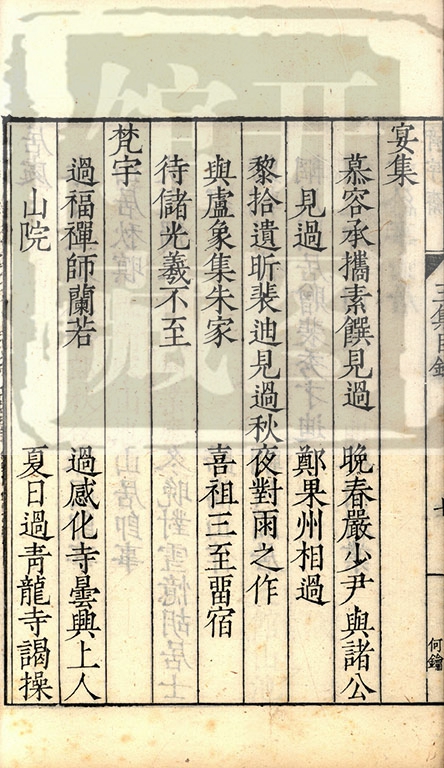 宴集
慕容承攜素饌見過　晚春嚴少尹與諸公
見過　鄭果州相過
黎拾遺昕裴迪見過秋夜對雨之作
與盧象集朱家　喜祖三至畱宿
待儲光羲不至
梵宇
過福禪師蘭若　過感化寺曇興上人
山院　夏日過青龍寺謁操
七
何鑰